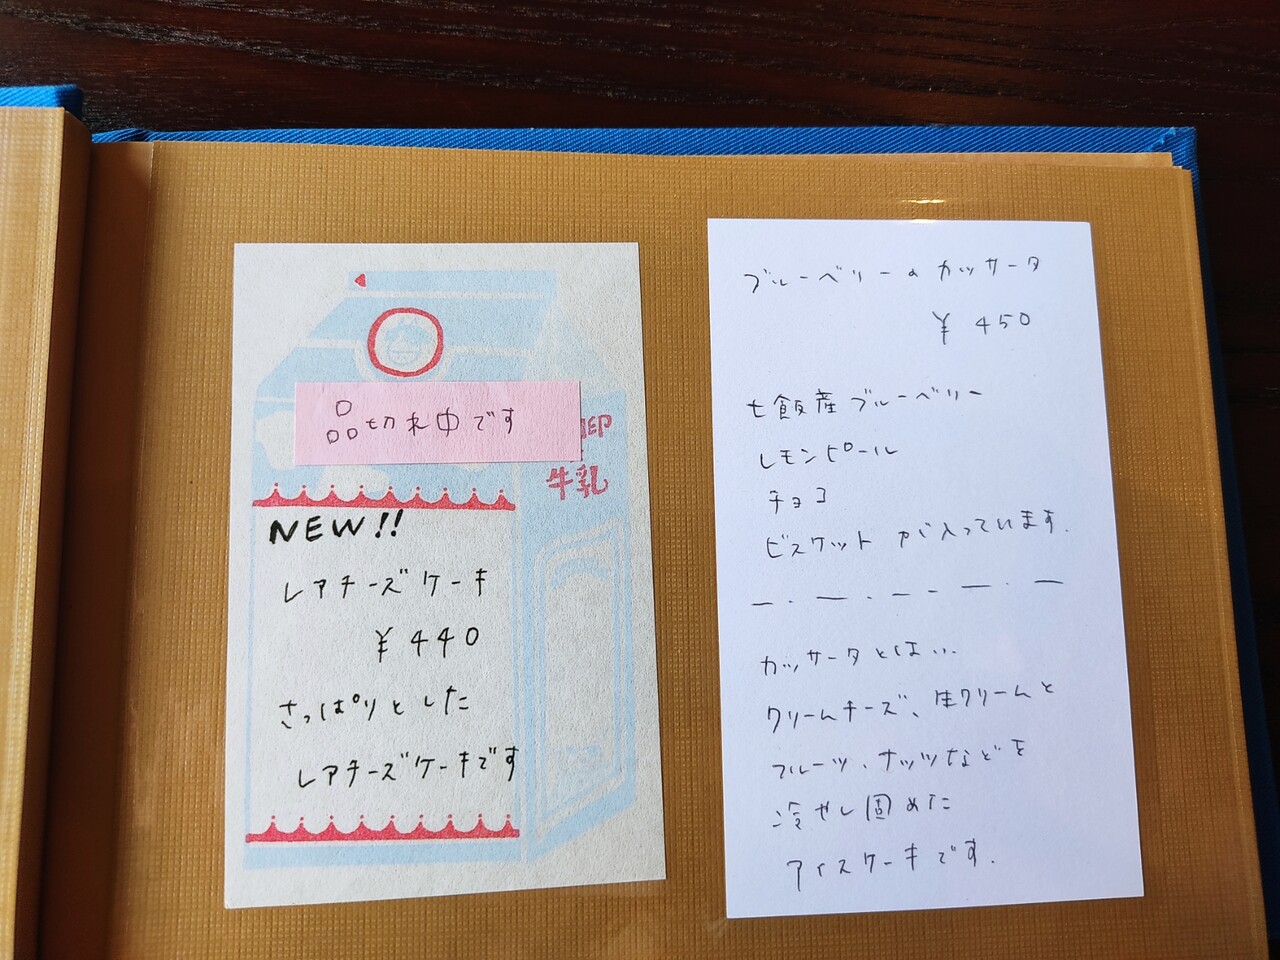 品切れ中です
印
牛乳
NEW!!
レアチーズケーキ
¥440
さっぱりとした
レアチーズケーキです
ブルーベリーのカッサータ
¥450
七飯産ブルーベリー
レモンピール
チョコ
ビスケットが入っています.
カッサータとは...
クリームチーズ、生クリームと
フルーツ、ナッツなどを
冷やし固めた
アイスケーキです.